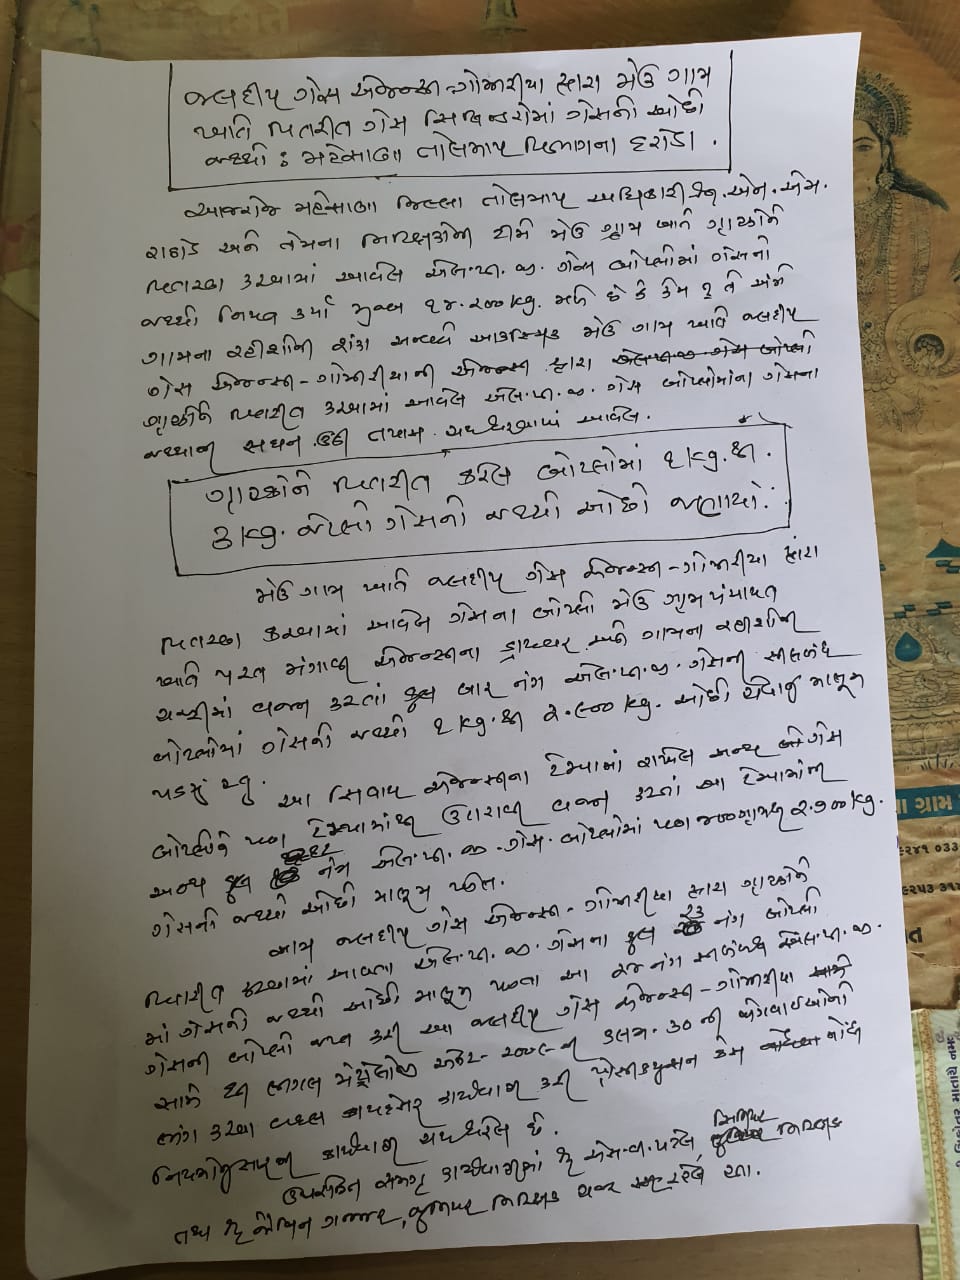 જલદીપ ગેસ એજન્સી-ગોઝારીયા દ્વારા મેઉ ગામ
ખાતે વિતરીત ગેસ સિલિન્ડરોમાં ગેસની ઓછી
જથ્થો : મહેસાણા તોલમાપ વિભાગના દરોડા.
આજરોજ મહેસાણા જિલ્લા તોલમાપ અધિકારી શ્રી એન.એમ.
રાઠોડ અને તેમના નિરિક્ષકોની ટીમે મેઉ ગામ ખાતે ગ્રાહકોને
વિતરણ કરવામાં આવેલ એલ.પી.જી. ગેસ બોટલોમાં ગેસનો
જથ્થો નિયત કર્યા મુજબ ૧૪.૨૦૦ kg. મળે છે કે કેમ ? તે અંગે
ગામના રહીશોની શંકા અન્વયે આકસ્મિક મેઉ ગામ ખાતે જલદીપ
ગેસ એજન્સી-ગોઝારીયાની એજન્સી દ્વારા
ગ્રાહકોને વિતરીત કરવામાં આવેલ એલ.પી.જી. ગેસ બોટલોમાંના ગેસના
જથ્થાની સઘન તપાસ હાથ ધરવામાં આવેલ.
ગ્રાહકોને વિતરીત કરેલ બોટલોમાં ૧ kg. થી
૩ kg. જેટલો ગેસની જથ્થો ઓછો જણાયો.
મેઉ ગામ ખાતે જલદીપ ગેસ એજન્સી-ગોઝારીયા દ્વારા
વિતરણ કરવામાં આવેલ ગેસના બોટલો મેઉ ગ્રામ પંચાયત
ખાતે પરત મંગાવી એજન્સીના ડ્રાઈવર અને ગામના રહીશોની
હાજરીમાં વજન કરતાં કુલ બાર નંગ એલ.પી.જી. ગેસની સીલબંધ
બોટલોમાં ગેસની જથ્થો ૧ kg. થી ૨.૯૦૦ kg. ઓછો હોવાનું માલુમ
પડ્યું હતુ.
આ સિવાય એજન્સીના ટેમ્પામાં રાખેલ અન્ય ગેસ
બોટલોને પણ ટેમ્પામાંથી ઉતરાવી વજન કરતાં આ ટેમ્પામાંની
અન્ય કુલ નંગ એલ.પી.જી. ગેસ બોટલોમાં પણ ૪૦૦ગ્રામથી ૨.૭૦૦ kg.
ગેસની જથ્થો ઓછો માલુમ પડેલ.
આમ જલદીપ ગેસ એજન્સી-ગોઝારીયા દ્વારા ગ્રાહકોને
વિતરીત કરવામાં આવતા એલ.પી.જી. ગેસના કુલ ૨૩ નંગ બોટલો
માં ગેસની જથ્થો ઓછો માલુમ પડતા આ ૨૩ નંગ સીલબંધ એલ.પી.જી.
ગેસની બોટલો જપ્ત કરી આ જલદીપ ગેસ એજન્સી-ગોઝારીયા
સામે ધી લીગલ મેટ્રોલોજી એક્ટ-૨૦૦૯ની કલમ-૩૦ ની જોગવાઈઓનો
ભંગ કરવા બદલ કાયદેસર કાર્યવાહી કરી પ્રોસીક્યુશન કેસ નોંધી
નિયમોનુસારની કાર્યવાહી હાથ ધરેલ છે.
ઉપરોક્ત સમગ્ર કાર્યવાહીમાં શ્રી એસ.વી. પટેલ સિનિયર નિરિક્ષક
તથા શ્રી ગજ્જર, જુનિયર નિરિક્ષક હાજર રહેલ હતા.